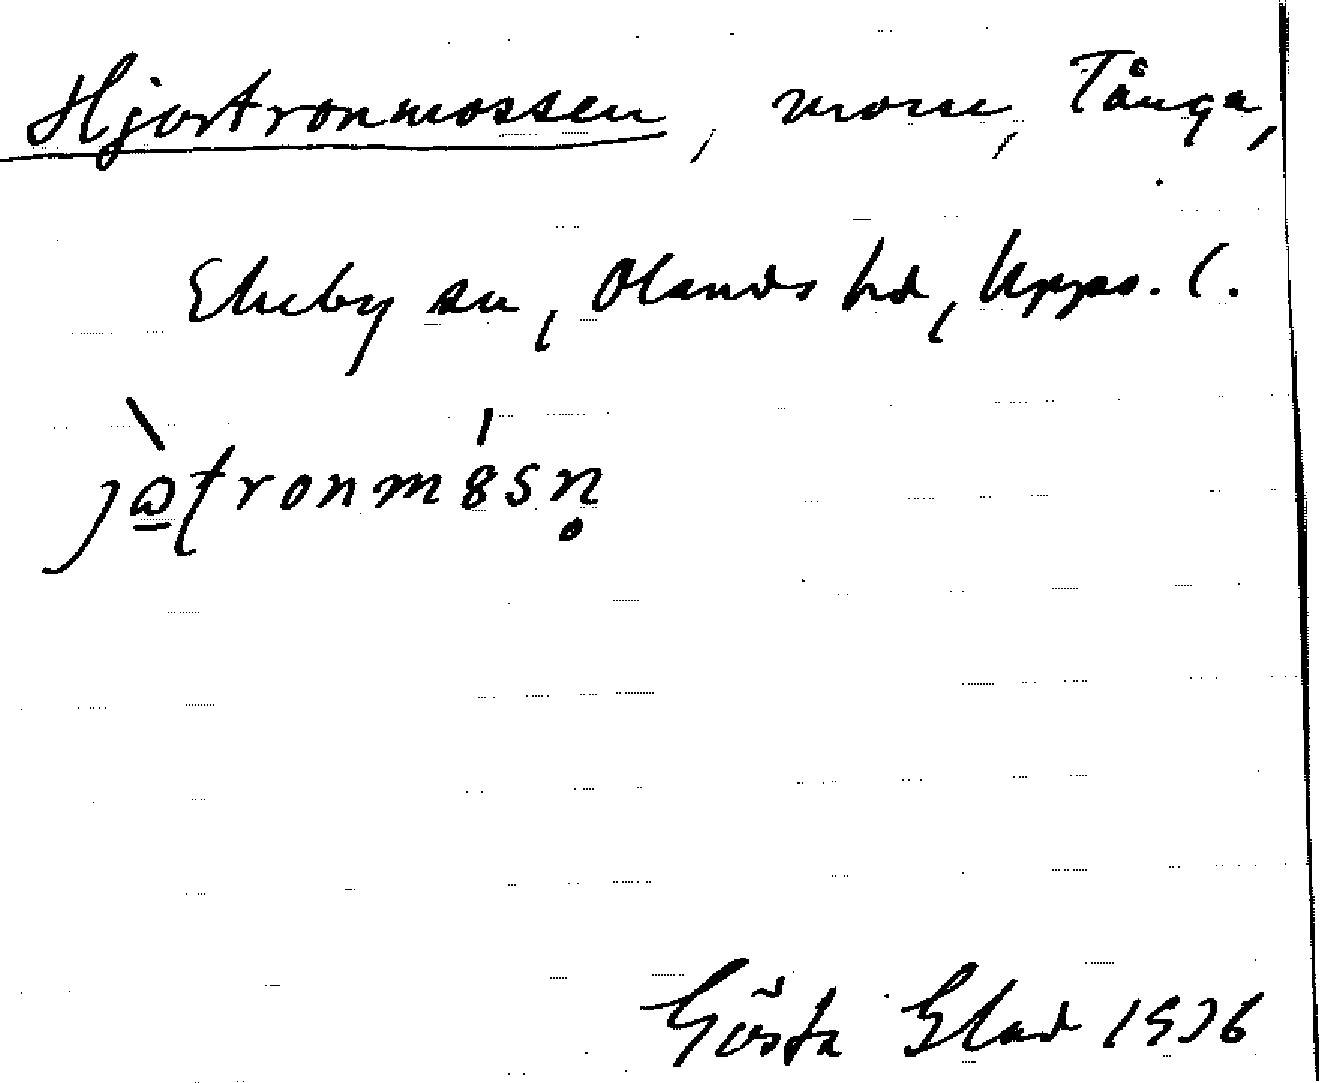 Hjortronmossen, mosse, Tånga,
Ekeby sn, Olands hd, Upps. l.
jòtronmȯ́sn̥
Gösta Blad 1936